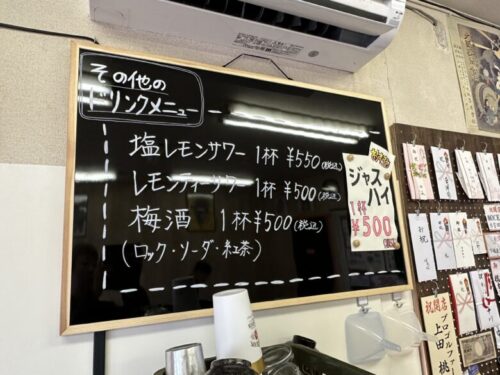 その他の
ドリンクメニュー
塩レモンサワー 1杯 ¥550(税込)
レモンティーサワー 1杯 ¥500(税込)
梅酒 1杯¥500(税込)
(ロック・ソーダ・紅茶)
ジャス
ハイ
1杯
¥500
祝開店
プロゴルファー
上田 桃
お祝